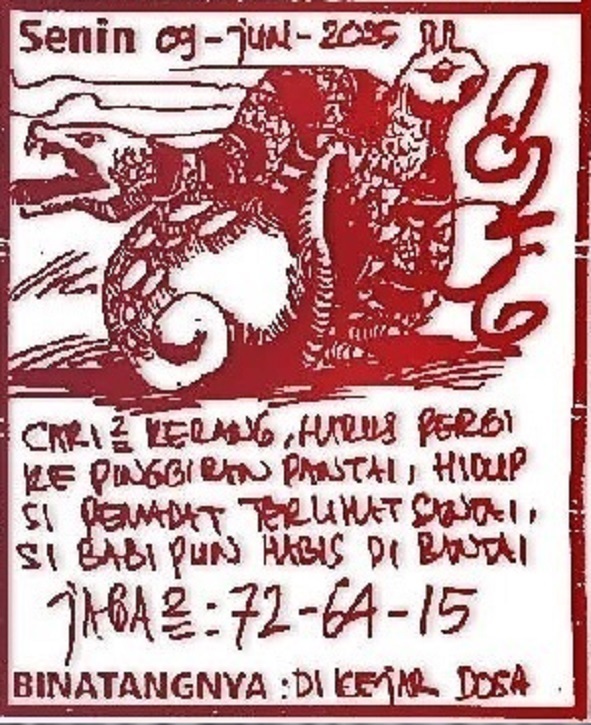 Senin 09-juni-2025
CARI2 KERANG, HARUS PERGI
KE PINGGIRAN PANTAI, HIDUP
SI PEMADAT TERLIHAT SANTAI,
SI BABI PUN HABIS DI BANTAI
JAGA2 : 72-64-15
BINATANGNYA : DI KEJAR DOSA